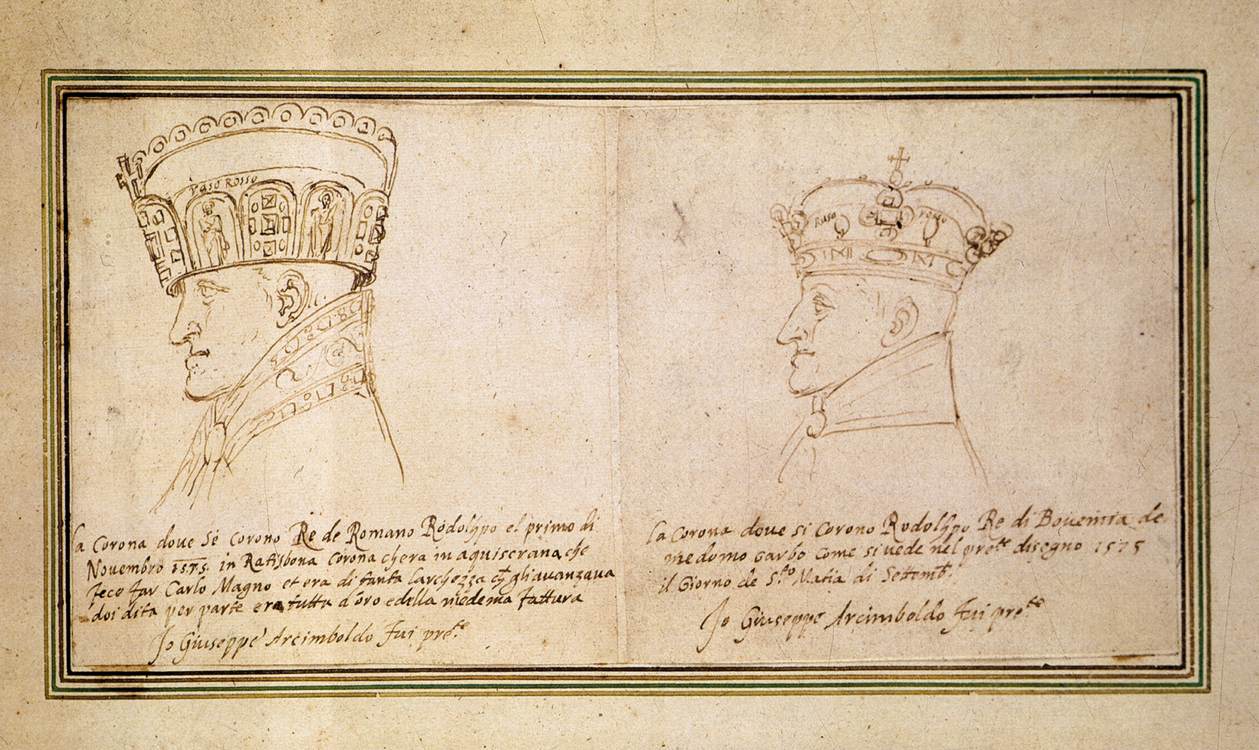 Raso Rosso
la Corona doue Sé Corono Re de Romano Rodolfo el primo di
Novembro 1575. in Ratisbona Corona chera in aquisgrana che
fece far Carlo Magno et era di tanta larghezza gli auanzaua
doi dita per parte era tutta d'oro e della medema fattura
Io Giuseppe Arcimboldo fui pre.te
Raso roso
la Corona doue si Corono Rodolfo Re di Bouemia de
medemo garbo come si vede nel pres.te disegno 1575
il Giorno de S.to Matia di Settemb.
Io Giuseppe Arcimboldo fui pre.te